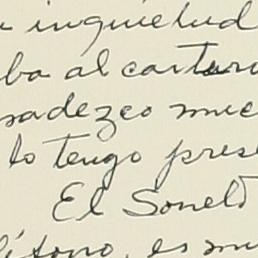 inquietud
ba al cartero
radezco muc
lo tengo prese
El Soneto
léfono, es mu